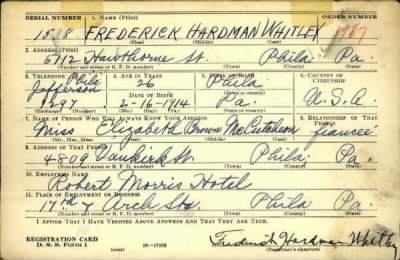 SERIAL NUMBER 1. NAME (Print) ORDER NUMBER
1518 FREDERICK HARDMAN WHITLEY 1787
(First) (Middle) (Last)
2. ADDRESS (Print)
5712 Hawthorne St. Phila. Pa.
(Number and street or R. F. D. number) (Town) (County) (State)
3. TELEPHONE 4. AGE IN YEARS 5. PLACE OF BIRTH 6. COUNTRY OF CITIZENSHIP
Phila
Jefferson 26 Phila
DATE OF BIRTH
2-16-1914 Pa. U.S.A.
(Exchange) (Number) (Mo.) (Day) (Yr.) (State or country)
7. NAME OF PERSON WHO WILL ALWAYS KNOW YOUR ADDRESS 8. RELATIONSHIP OF THAT PERSON
Miss Elizabeth Brown McCutcheon fiancee
(Mr., Mrs., Miss) (First) (Middle) (Last)
9. ADDRESS OF THAT PERSON
4809 Vankirk St. Phila. Pa.
(Number and street or R. F. D. number) (Town) (County) (State)
10. EMPLOYER'S NAME
Robert Morris Hotel
11. PLACE OF EMPLOYMENT OR BUSINESS
17th & Arch Sts Phila Pa.
(Number and street or R. F. D. number) (Town) (County) (State)
I AFFIRM THAT I HAVE VERIFIED ABOVE ANSWERS AND THAT THEY ARE TRUE.
REGISTRATION CARD
D. S. S. Form 1 (over) Frederick Hardman Whitley
(Registrant's signature)